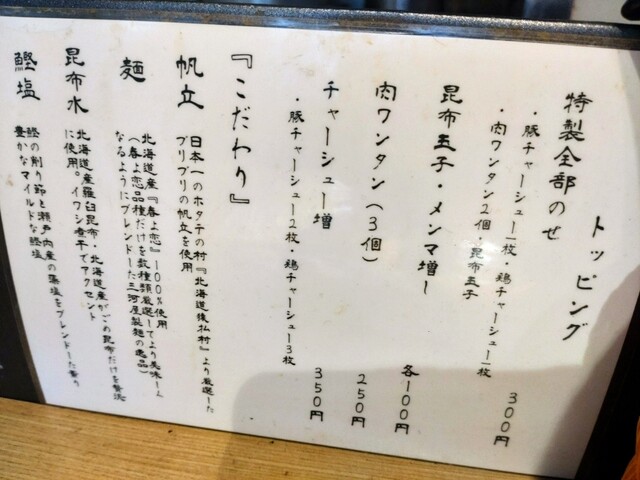 トッピング
特製全部のせ 300円
・豚チャーシュー一枚・鶏チャーシュー一枚
・肉ワンタン2個・昆布玉子
昆布玉子・メンマ増し 各100円
肉ワンタン(3個) 250円
チャーシュー増 350円
・豚チャーシュー2枚・鶏チャーシュー3枚
『こだわり』
帆立 日本一のホタテの村『北海道猿払村』より厳選した
プリプリの帆立を使用
麺 北海道産『春よ恋』100%使用
(春よ恋品種だけを数種類厳選してより美味しく
なるようにブレンドした三河屋製麺の逸品)
昆布水 北海道産羅臼昆布・北海道産がごめ昆布だけを贅沢
に使用。イワシ煮干でアクセント
鰹塩 鰹の削り節と瀬戸内産の藻塩をブレンドした香り
豊かなマイルドな鰹塩